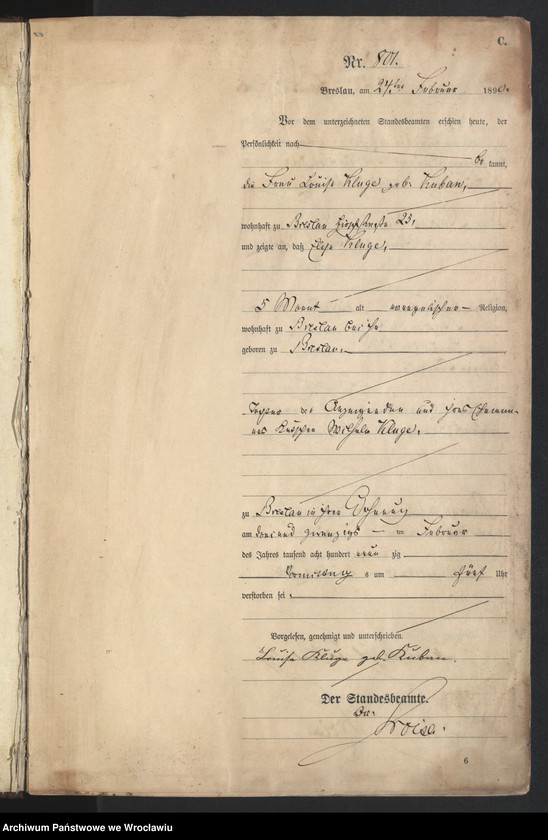 C.
Nr. 801.
Breslau, am 24ten Februar 1890.
Vor dem unterzeichneten Standesbeamten erschien heute, der
Persönlichkeit nach
be kannt,
die Frau Louise Kluge geb. Kuban,
wohnhaft zu Breslau 23,
und zeigte an, daß Kluge,
5 Monat alt evangelischer Religion,
wohnhaft zu Breslau bei ihr
geboren zu Breslau,
Tochter der Anzeigenden und ihres Eheman-
nes Kutscher Wilhelm Kluge,
zu Breslau in ihrer Wohnung
am drei und zwanzigsten Februar
des Jahres tausend acht hundert neun zig
Vormittags um fünf Uhr
verstorben sei.
Vorgelesen, genehmigt und unterschrieben.
Louise Kluge geb. Kuban.
Der Standesbeamte.
6
Archiwum Państwowe we Wrocławiu